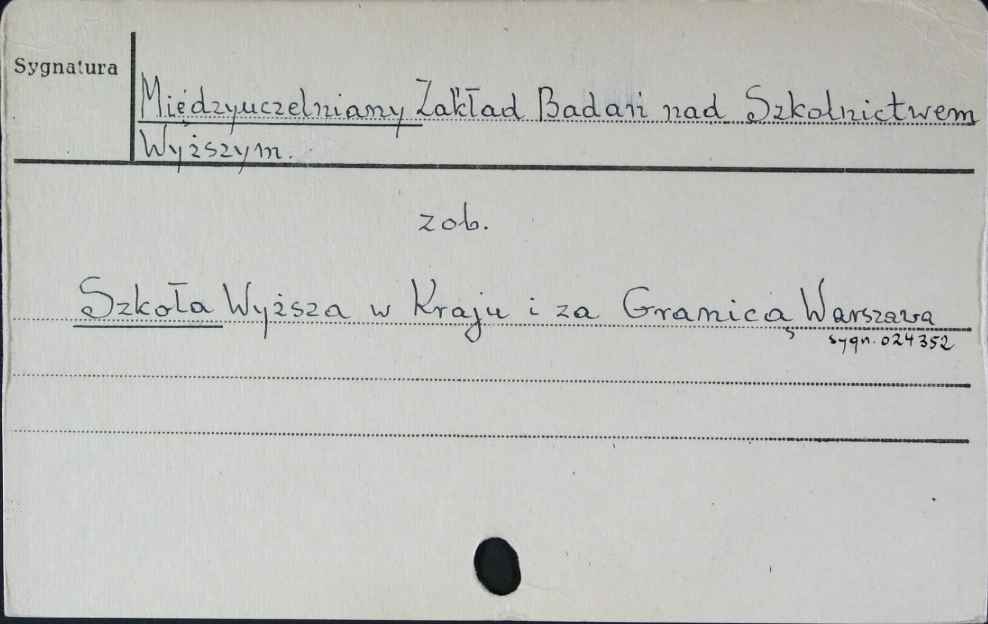 Sygnatura
Międzyuczelniany Zakład Badań nad Szkolnictwem
Wyższym.
zob.
Szkoła Wyższa w Kraju i za Granicą Warszawa
sygn. 024352